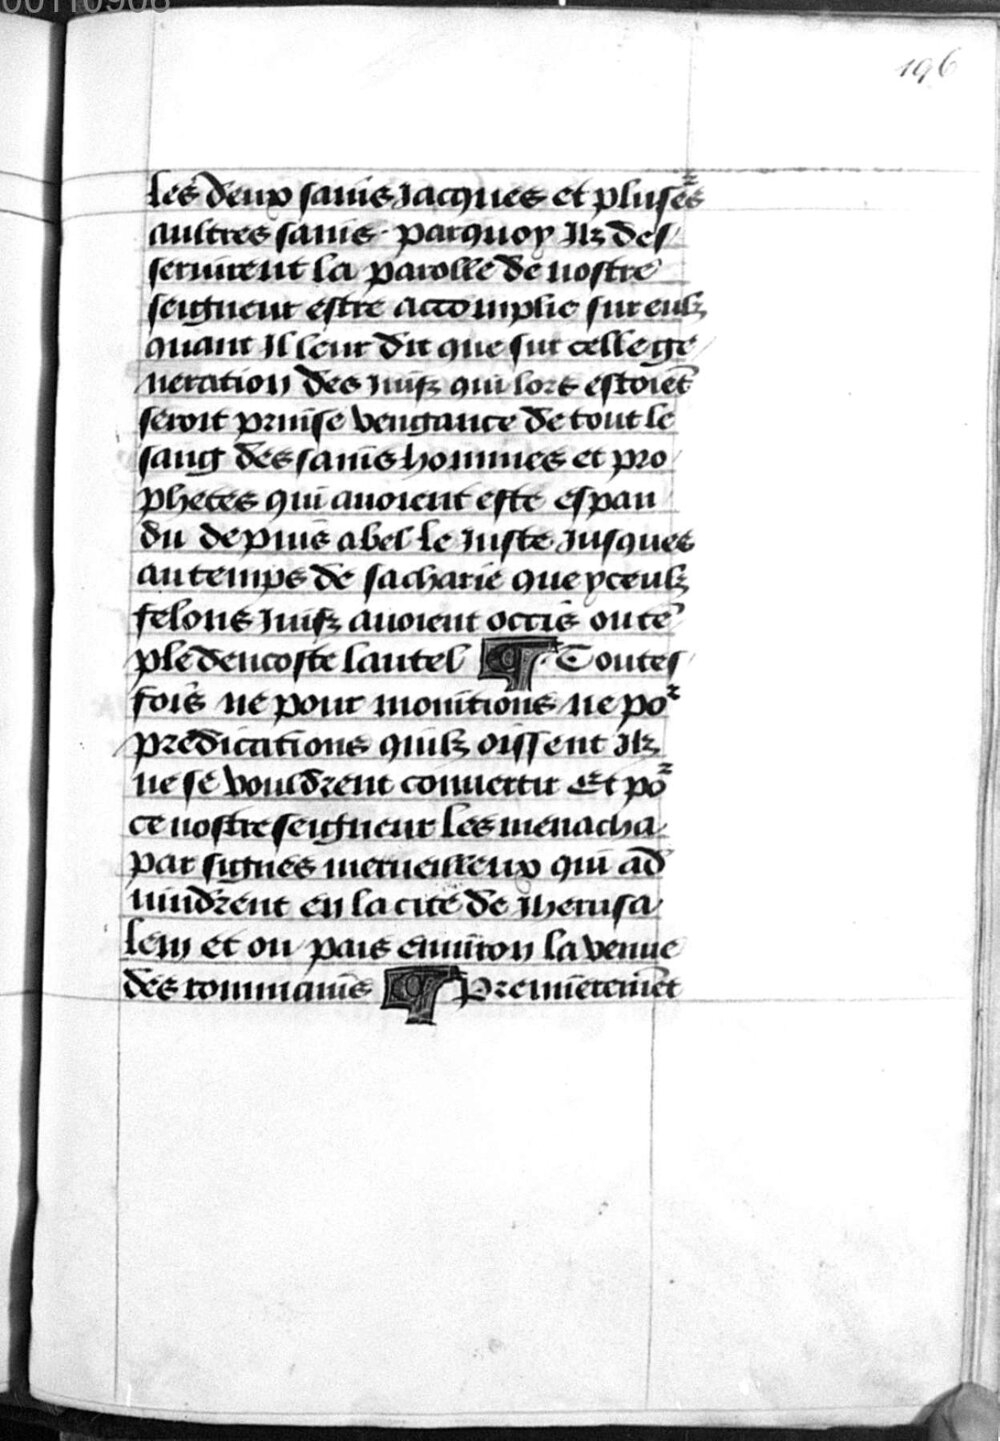 00110908
196
les deux sains Jacques et pluse᷒s
aultres sains · parquoy Ilz des/
seruirent la parolle de nostre
seigneur estre accomplie sur eulz
quant Il leur dit que sur celle ge/
neration des Juifz qui lors estoiẽt
seroit prinse vengance de tout le
sang des sains hommes et pro/
phetes qui auoient este espan
du depuis abel le Juste Jusques
au temps de sacharie que yceulz
felons Juifz auoient occis ou tẽ
ple dencoste lautel ¶ Toutes/
fois ne pour monitions ne po᷒
predications quilz oissent Ilz
ne se vouldrent conuertir Et po᷒
ce nostre seigneur les menacha
par signes merueilleux qui ad
uindrent en la cite de Jherusa
lem et ou pais enuiron la venue
des rommains ¶ Premieremẽt